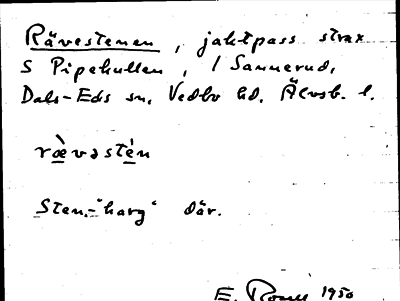 Rävestenen, jaktpass strax
S Pipekullen, i Sannerud,
Dals-Eds sn, Vedbo hd. Älvsb. l.
rævəstén
Sten-"harg" där.
E. 1950